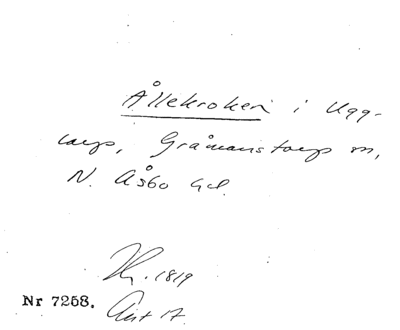 Ållekroken i Ugg-
larp, Gråmanstorps sn,
N. Åsbo hd.
1819
Nr 7258. Ant 17